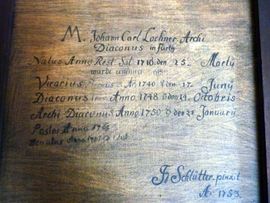 M. Johann Carl Lochner Archi
Diaconus in Fürth
Natus Anno Rest. Sal. 1710. den 25. Martij
wurde
Vicarius Anno Ao. 1740 d. 17. Junij
Diaconus Anno. 1748. d. 24. Octobris
Archi Diaconus Anno 1750 d. 21 January
Pastor Anno
Ao. 1753.
Schlütter. pinxit